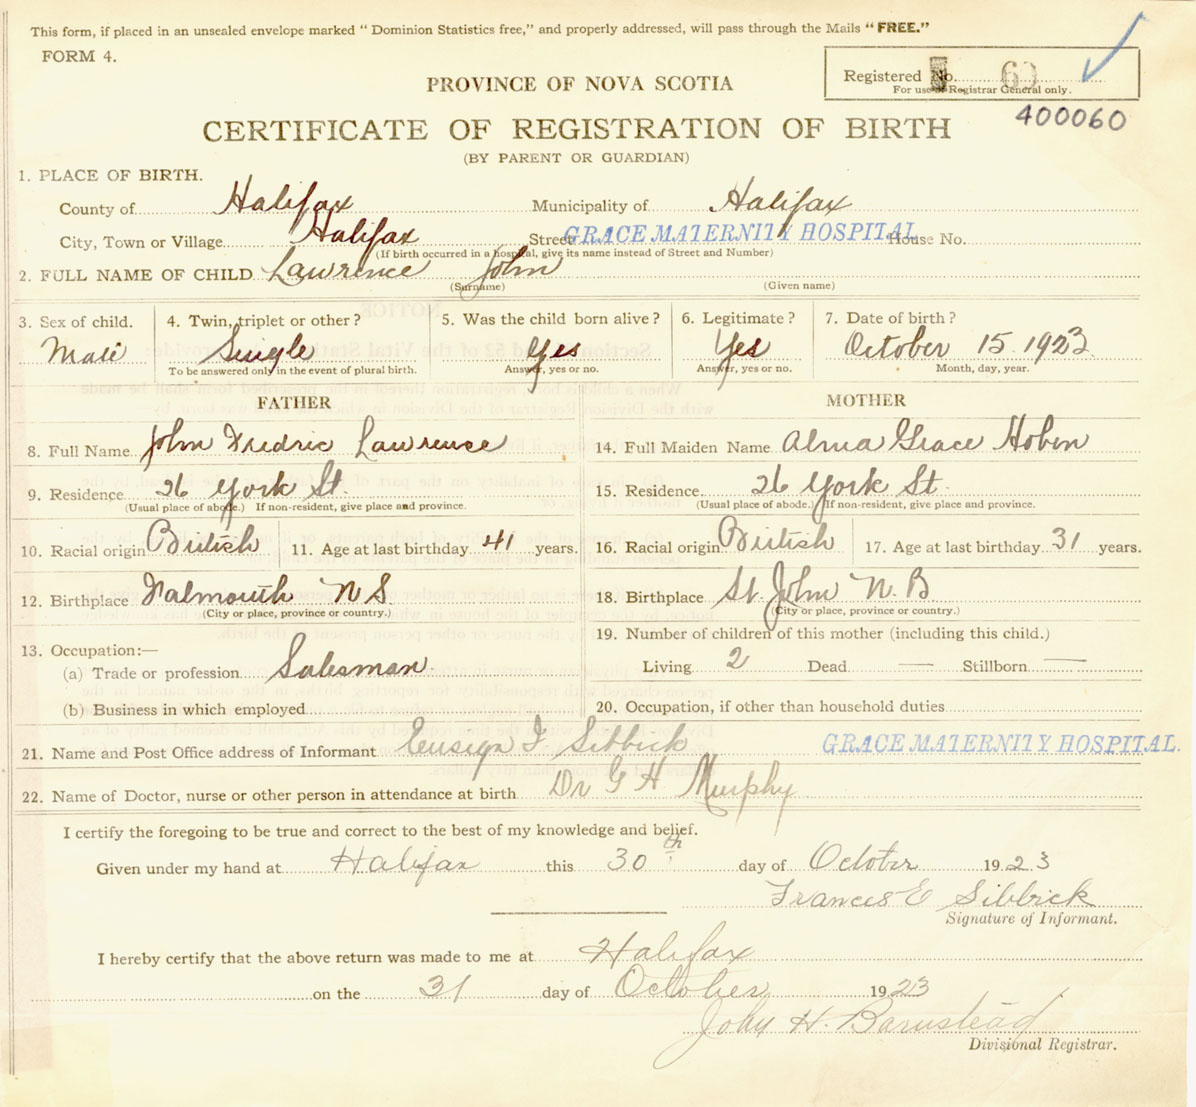 This form, if placed in an unsealed envelope marked "Dominion Statistics free," and properly addressed, will pass through the Mails "FREE."
FORM 4.
Registered No. 60
For use of Registrar General only.
400060
PROVINCE OF NOVA SCOTIA
CERTIFICATE OF REGISTRATION OF BIRTH
(BY PARENT OR GUARDIAN)
1. PLACE OF BIRTH.
County of Halifax Municipality of Halifax
City, Town or Village Halifax Street GRACE MATERNITY HOSPITAL House No.
(If birth occurred in a hospital, give its name instead of Street and Number)
2. FULL NAME OF CHILD Lawrence John
(Surname) (Given name)
3. Sex of child. 4. Twin, triplet or other? 5. Was the child born alive? 6. Legitimate? 7. Date of birth?
Male Single Yes Yes October 15 1923
To be answered only in the event of plural birth. Answer, yes or no. Answer, yes or no. Month, day, year.
FATHER MOTHER
8. Full Name John Fredric Lawrence 14. Full Maiden Name Alma Grace Hoben
9. Residence 26 York St. 15. Residence 26 York St
(Usual place of abode.) If non-resident, give place and province. (Usual place of abode.) If non-resident, give place and province.
10. Racial origin British 11. Age at last birthday 41 years. 16. Racial origin British 17. Age at last birthday 31 years.
12. Birthplace Falmouth N S. 18. Birthplace St. John N. B
(City or place, province or country.) (City or place, province or country.)
19. Number of children of this mother (including this child.)
13. Occupation:—
Living 2 Dead — Stillborn —
(a) Trade or profession Salesman
(b) Business in which employed 20. Occupation, if other than household duties
21. Name and Post Office address of Informant Ensign F Sibbick GRACE MATERNITY HOSPITAL.
22. Name of Doctor, nurse or other person in attendance at birth Dr G H Murphy
I certify the foregoing to be true and correct to the best of my knowledge and belief.
Given under my hand at Halifax this 30th day of October 1923
Frances E Sibbick
Signature of Informant.
I hereby certify that the above return was made to me at Halifax
on the 31 day of October 1923
John H. Barnstead
Divisional Registrar.